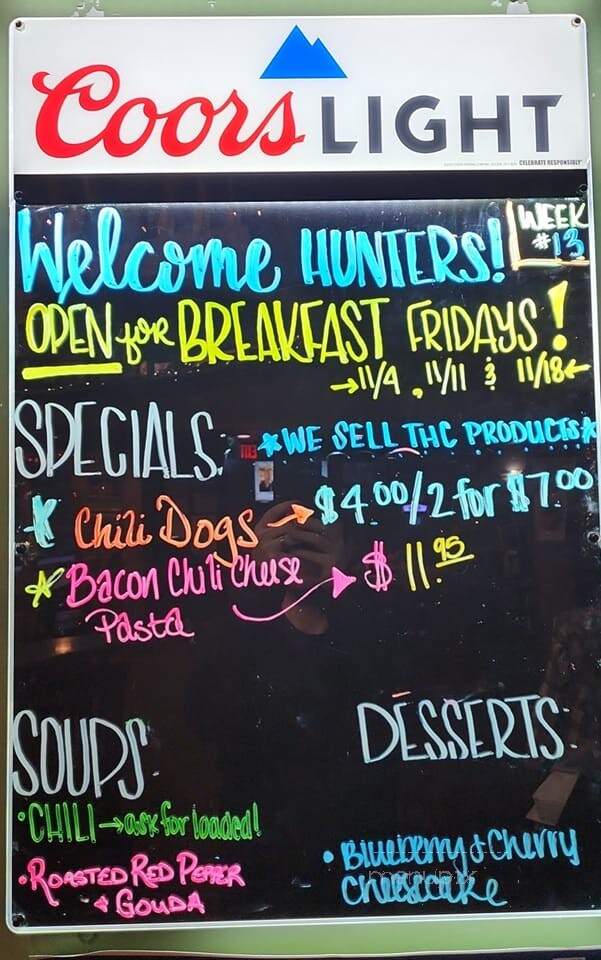 Coors LIGHT
CELEBRATE RESPONSIBLY
Welcome HUNTERS!
WEEK
#13
OPEN for BREAKFAST FRIDAYS!
→11/4, 11/11 & 11/18←
SPECIALS:
*WE SELL THC PRODUCTS*
* Chili Dogs → $4.00/2 for $7.00
* Bacon Chili Cheese → $11.95
Pasta
SOUPS:
•CHILI → ask for loaded!
•ROASTED RED PEPER
& GOUDA
DESSERTS:
• Blueberry & Cherry
Cheesecake
menupix